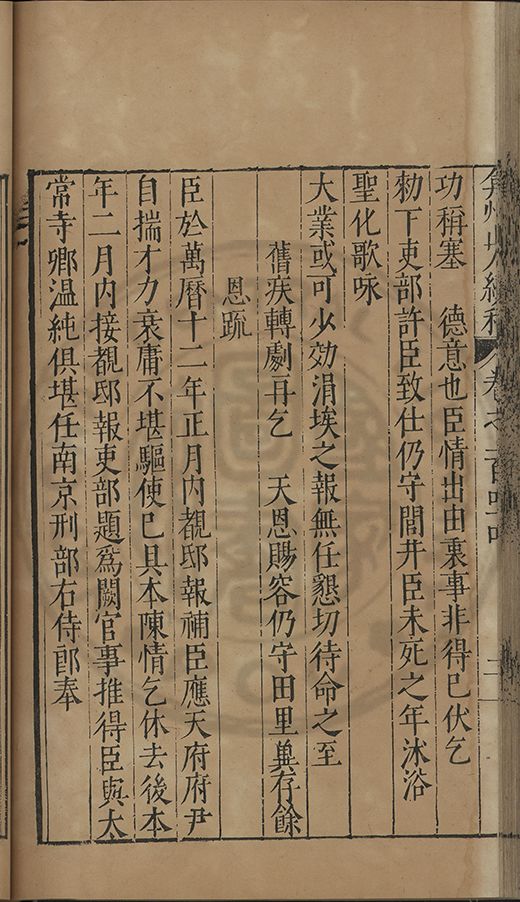 弇州山人續稿 卷之一百四 二
功稱塞 德意也臣情出由裏事非得已伏乞
勑下吏部許臣致仕仍守閭井臣未死之年沐浴
聖化歌咏
大業或可少効涓埃之報無任懇切待命之至
舊疾轉劇再乞 天恩賜容仍守田里兾存餘
恩疏
臣於萬曆十二年正月內覩邸報補臣應天府府尹
自揣才力衰庸不堪驅使已具本陳情乞休去後本
年二月內接覩邸報吏部題爲闕官事推得臣與太
常寺卿温純俱堪任南京刑部右侍郎奉